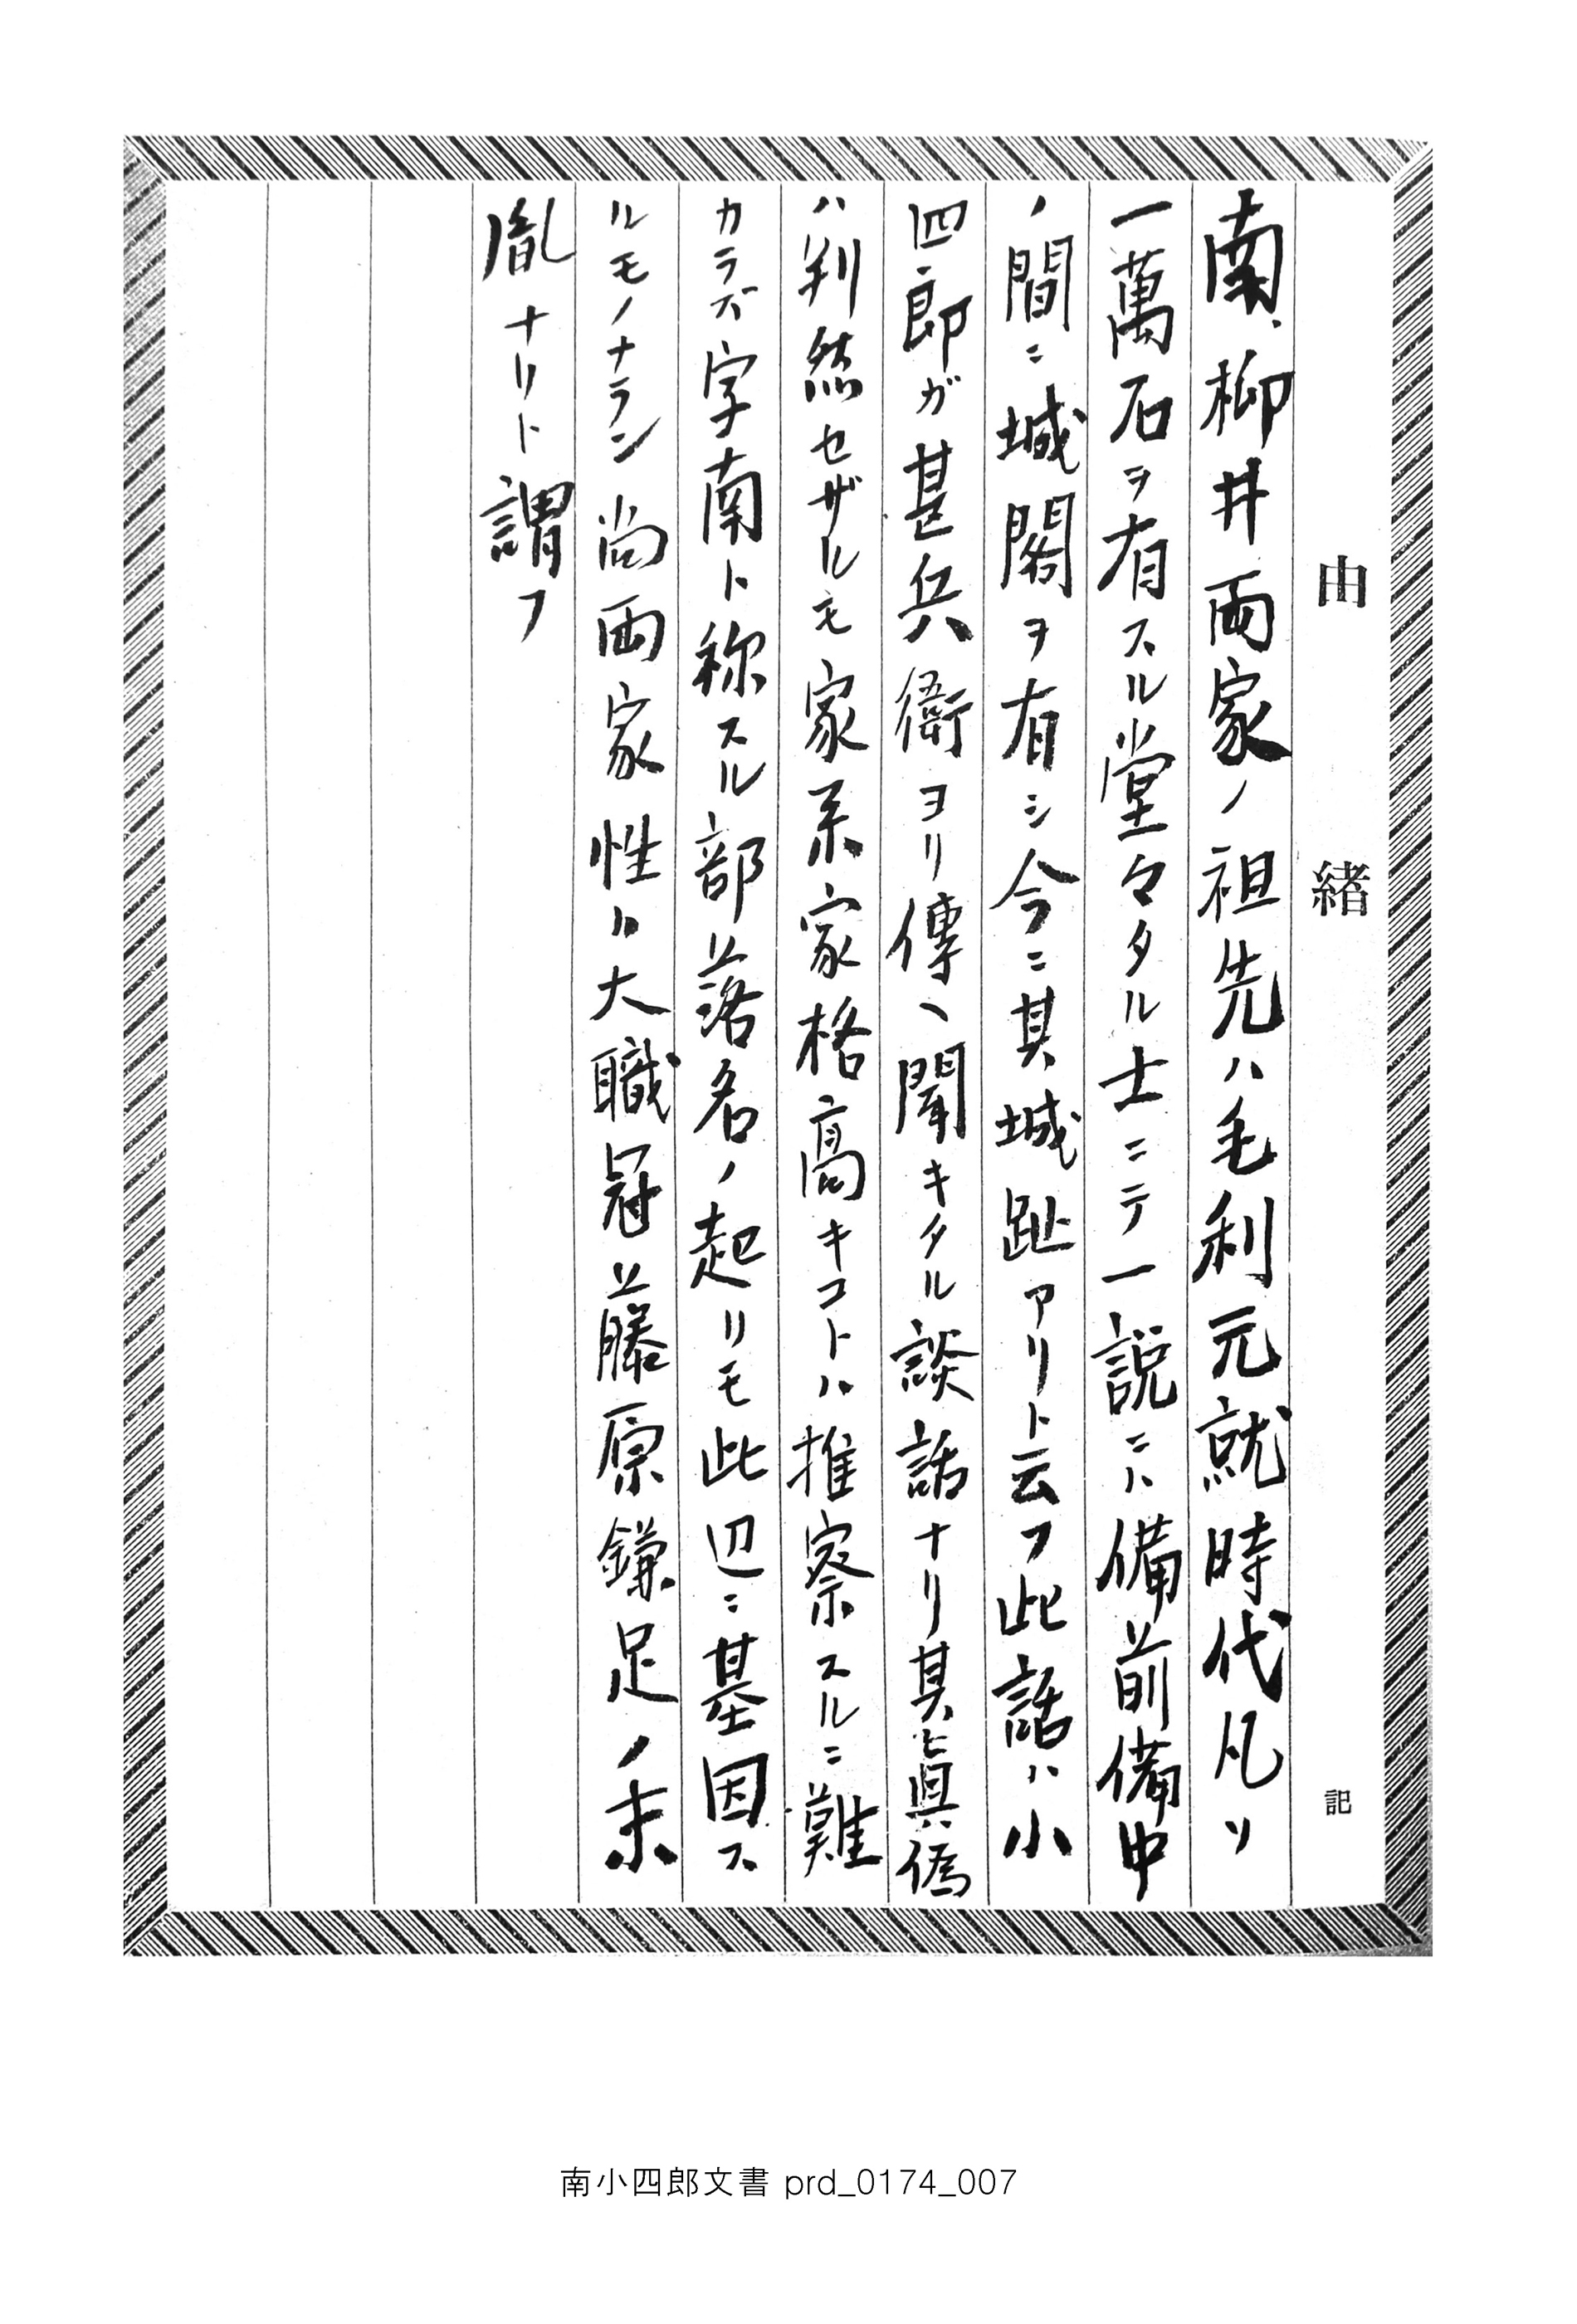 由緒記
南、柳井両家ノ祖先ハ毛利元就時代凡ソ
一萬石ヲ有スル堂々タル士ニテ一説ニハ備前備中
ノ間ニ城閣ヲ有シ今ニ其城趾アリト云フ此話ハ小
四郎ガ甚兵衛ヨリ傳ヘ聞キタル談話ナリ其眞偽
ハ判然セザルモ家系家格高キコトハ推察スルニ難
カラズ字南ト称スル部落名ノ起リモ此辺ニ基因ス
ルモノナラン尚両家性ハ大職冠藤原鎌足ノ末
胤ナリト謂フ
南小四郎文書 prd_0174_007